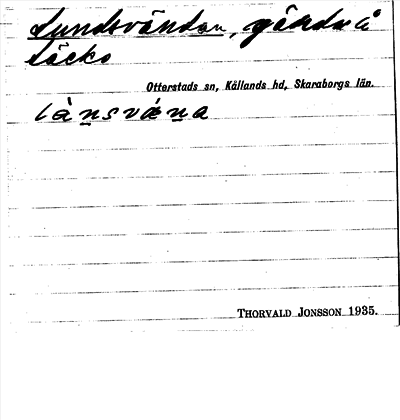 Lundsvändan, gärde å
Läcko
Otterstads sn, Kållands hd, Skaraborgs län.
lànsvána
THORVALD JONSSON 1935.